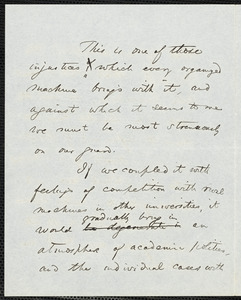 This is one of those
injustices which every organized
machine brings with it, and
against which it seems to me
we must be most strenuously
on our guard.
If we coupled it with
feelings of competition with rival
machines in other universities, it
gradually bring in
would be degenerate in an
atmosphere of academic politics
and the individual cases with